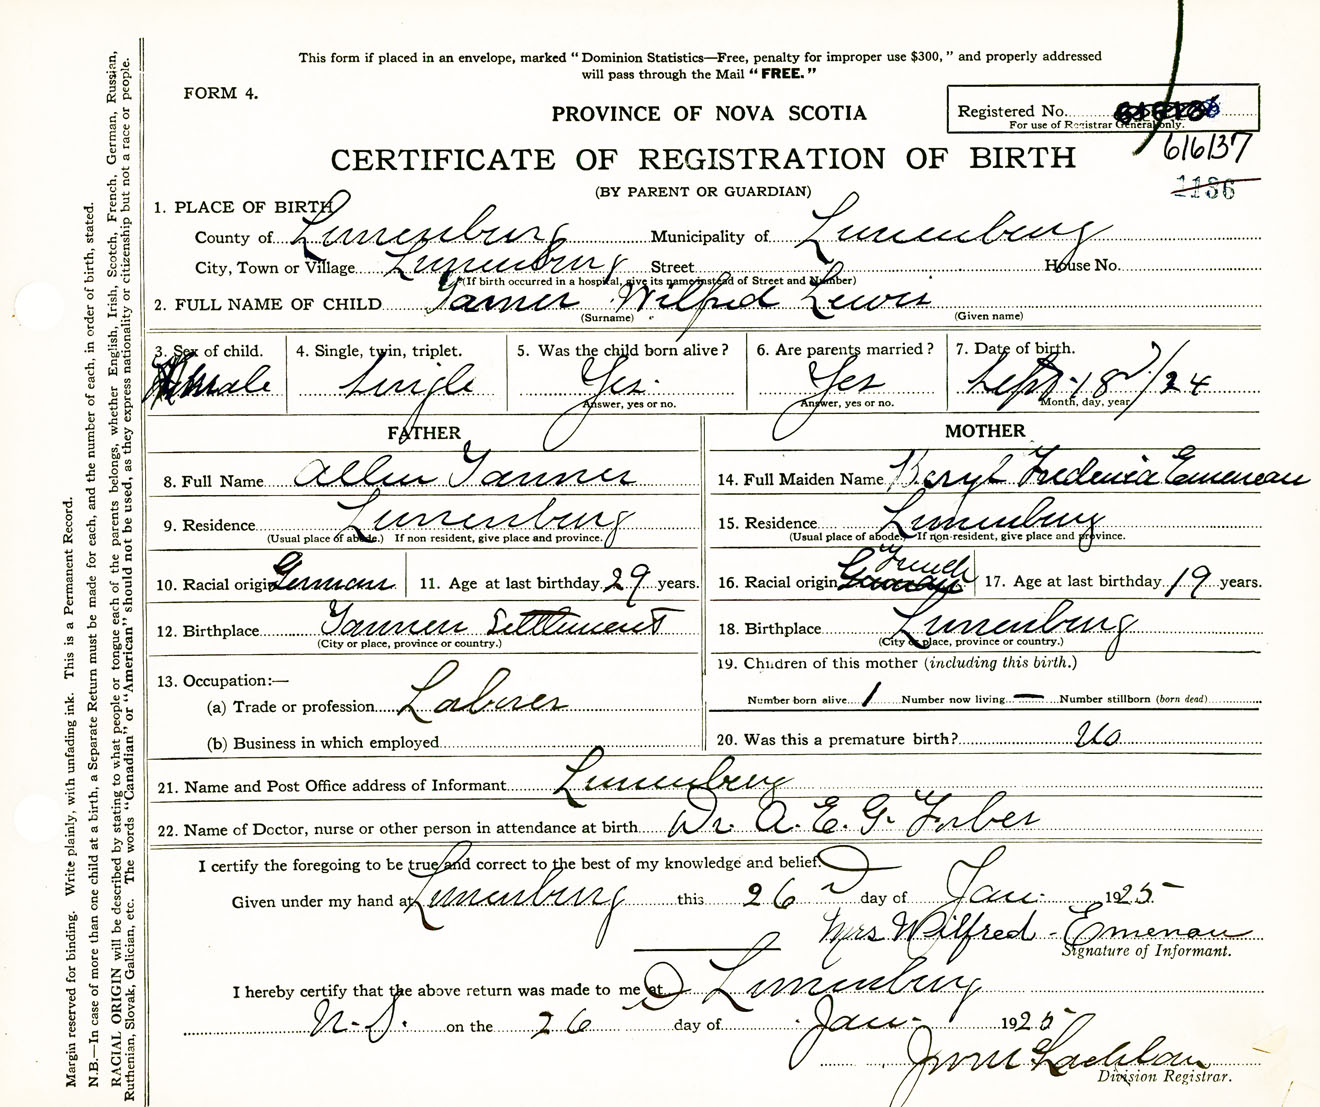 This form if placed in an envelope, marked "Dominion Statistics—Free, penalty for improper use $300," and properly addressed
will pass through the Mail "FREE."
FORM 4.
PROVINCE OF NOVA SCOTIA
Registered No.
For use of Registrar General only.
616137
CERTIFICATE OF REGISTRATION OF BIRTH
1186
(BY PARENT OR GUARDIAN)
1. PLACE OF BIRTH
County of Lunenburg Municipality of Lunenburg
City, Town or Village Lunenburg Street House No.
(If birth occurred in a hospital, give its name instead of Street and Number)
2. FULL NAME OF CHILD Tanner Wilfred Lewis
(Surname) (Given name)
3. Sex of child. 4. Single, twin, triplet. 5. Was the child born alive? 6. Are parents married? 7. Date of birth.
male Single Yes. Yes Sept. 18/24
Answer, yes or no. Answer, yes or no. Month, day, year
FATHER MOTHER
8. Full Name Allen Tanner 14. Full Maiden Name Beryl Frederica Emeneau
9. Residence Lunenburg 15. Residence Lunenburg
(Usual place of abode.) If non resident, give place and province. (Usual place of abode.) If non-resident, give place and province.
10. Racial origin German 11. Age at last birthday 29 years. 16. Racial origin French 17. Age at last birthday 19 years.
12. Birthplace Tanner Settlement 18. Birthplace Lunenburg
(City or place, province or country.) (City or place, province or country.)
13. Occupation:— 19. Children of this mother (including this birth.)
(a) Trade or profession Laborer Number born alive 1 Number now living — Number stillborn (born dead)
(b) Business in which employed 20. Was this a premature birth? No
21. Name and Post Office address of Informant Lunenburg
22. Name of Doctor, nurse or other person in attendance at birth Dr. A. E. G. Forbes
I certify the foregoing to be true and correct to the best of my knowledge and belief.
Given under my hand at Lunenburg this 26 day of Jan. 1925
Mrs Wilfred Emenau
Signature of Informant.
I hereby certify that the above return was made to me at Lunenburg
N.S. on the 26 day of Jan. 1925
Division Registrar.
Margin reserved for binding. Write plainly, with unfading ink. This is a Permanent Record.
N.B.—In case of more than one child at a birth, a Separate Return must be made for each, and the number of each, in order of birth, stated.
RACIAL ORIGIN will be described by stating to what people or tongue each of the parents belongs, whether English, Irish, Scotch, French, German, Russian,
Ruthenian, Slovak, Galician, etc. The words "Canadian" or "American" should not be used, as they express nationality or citizenship but not a race or people.